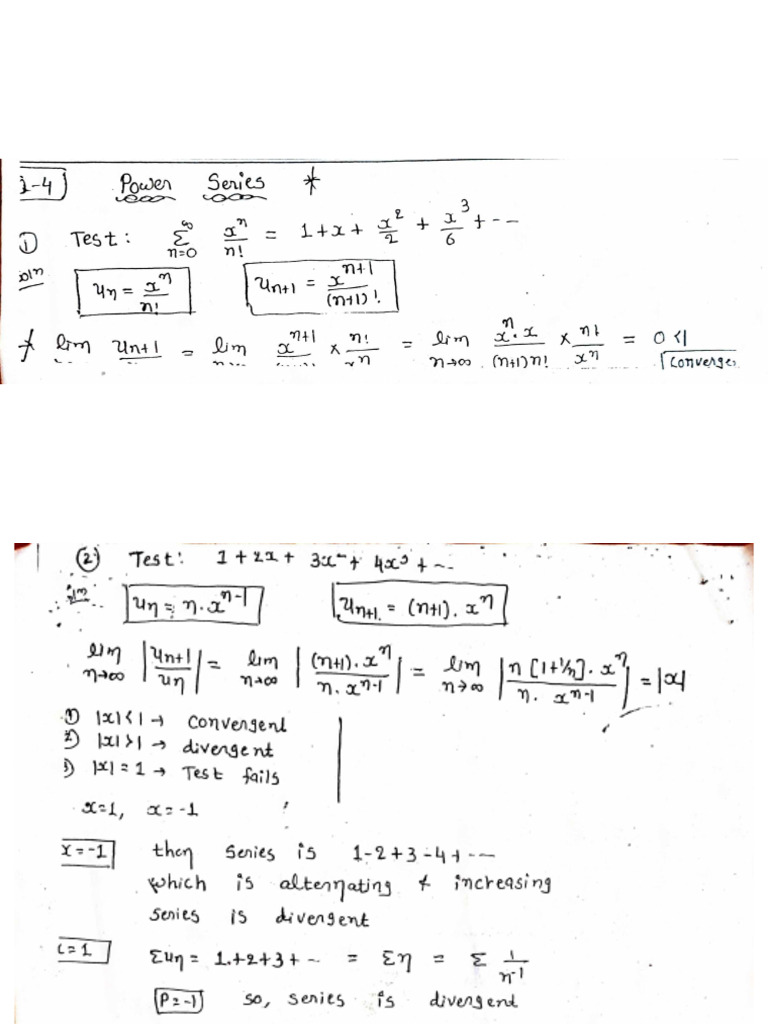 1-4] Power Series *
① Test: ∞ Σ n=0 xⁿ/n! = 1+x+ x²/2 + x³/6 + ---
Soln uₙ = xⁿ/n! uₙ₊₁ = xⁿ⁺¹/(n+1)!
* lim uₙ₊₁ = lim xⁿ⁺¹ × n!/xⁿ = lim n→∞ xⁿ·x/(n+1)n! × n!/xⁿ = 0<1
Converges
② Test: 1+2x+ 3x²+ 4x³+---
Soln uₙ = n·xⁿ⁻¹ uₙ₊₁ = (n+1)·xⁿ
lim n→∞ |uₙ₊₁/uₙ| = lim n→∞ |(n+1)·xⁿ/n·xⁿ⁻¹| = lim n→∞ |n[1+1/n]·xⁿ/n·xⁿ⁻¹| = |x|
1) |x|<1 → Convergent
2) |x|>1 → divergent
3) |x|=1 → Test fails
x=1, x=-1
x=-1 then series is 1-2+3-4+---
which is alternating & increasing
series is divergent
x=1 Σuₙ = 1+2+3+--- = Σn = Σ 1/n⁻¹
P=-1 so, series is divergent